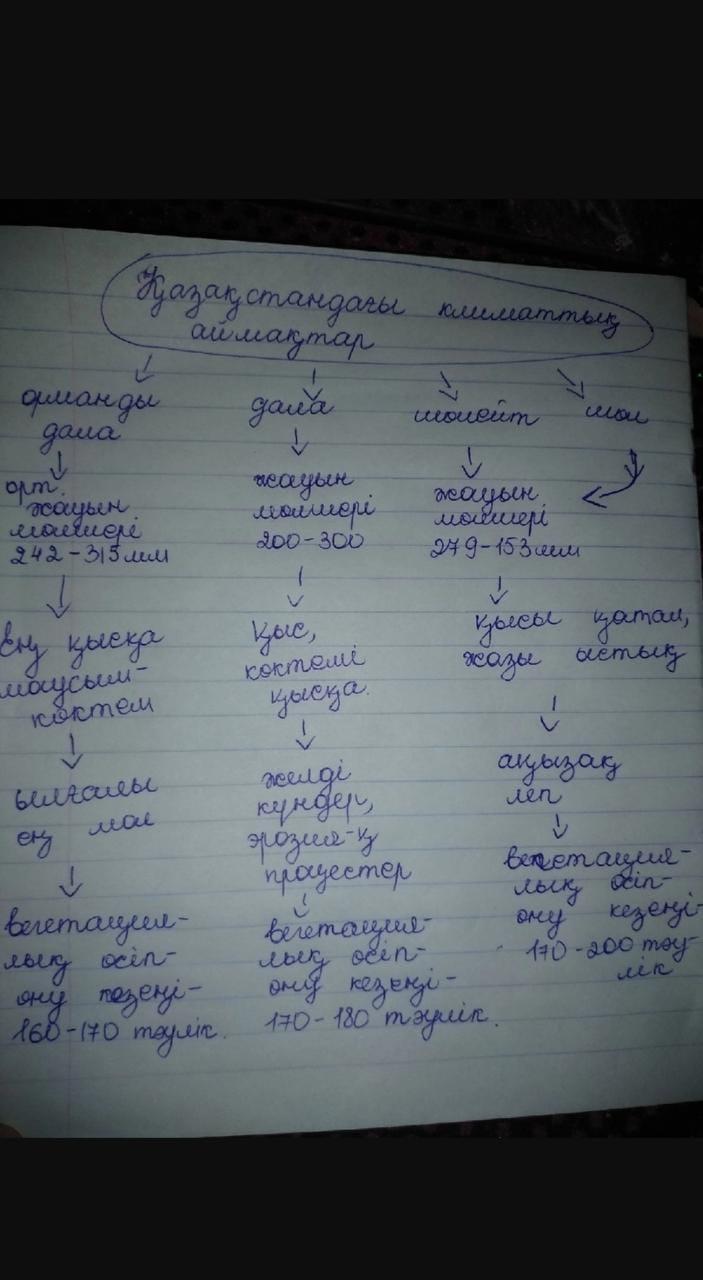 Қазақстандағы климаттық
аймақтар
орманды
дала
орт.
жауын
мөлшері
242-315мм
Ең қысқа
маусым-
көктем
ылғалы
ең мол
вегетация-
лық өсіп-
өну кезеңі-
160-170 тәулік.
дала
жауын
мөлшері
200-300
Қыс,
көктемі
қысқа.
желді
күндер,
эрозия-қ
процестер
вегетация-
лық өсіп-
өну кезеңі-
170-180 тәулік.
шөлейт
жауын
мөлшері
279-153мм
қысы қатал,
жазы ыстық
аңызақ
леп
вегетация-
лық өсіп-
өну кезеңі-
170-200 тәу-
лік
шөл